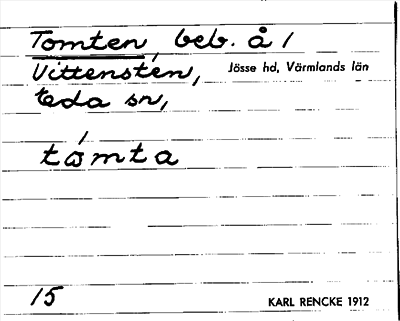 Tomten, beb. å /
Vittensten, Jösse hd, Värmlands län
Eda sn,
tómta
15
KARL RENCKE 1912